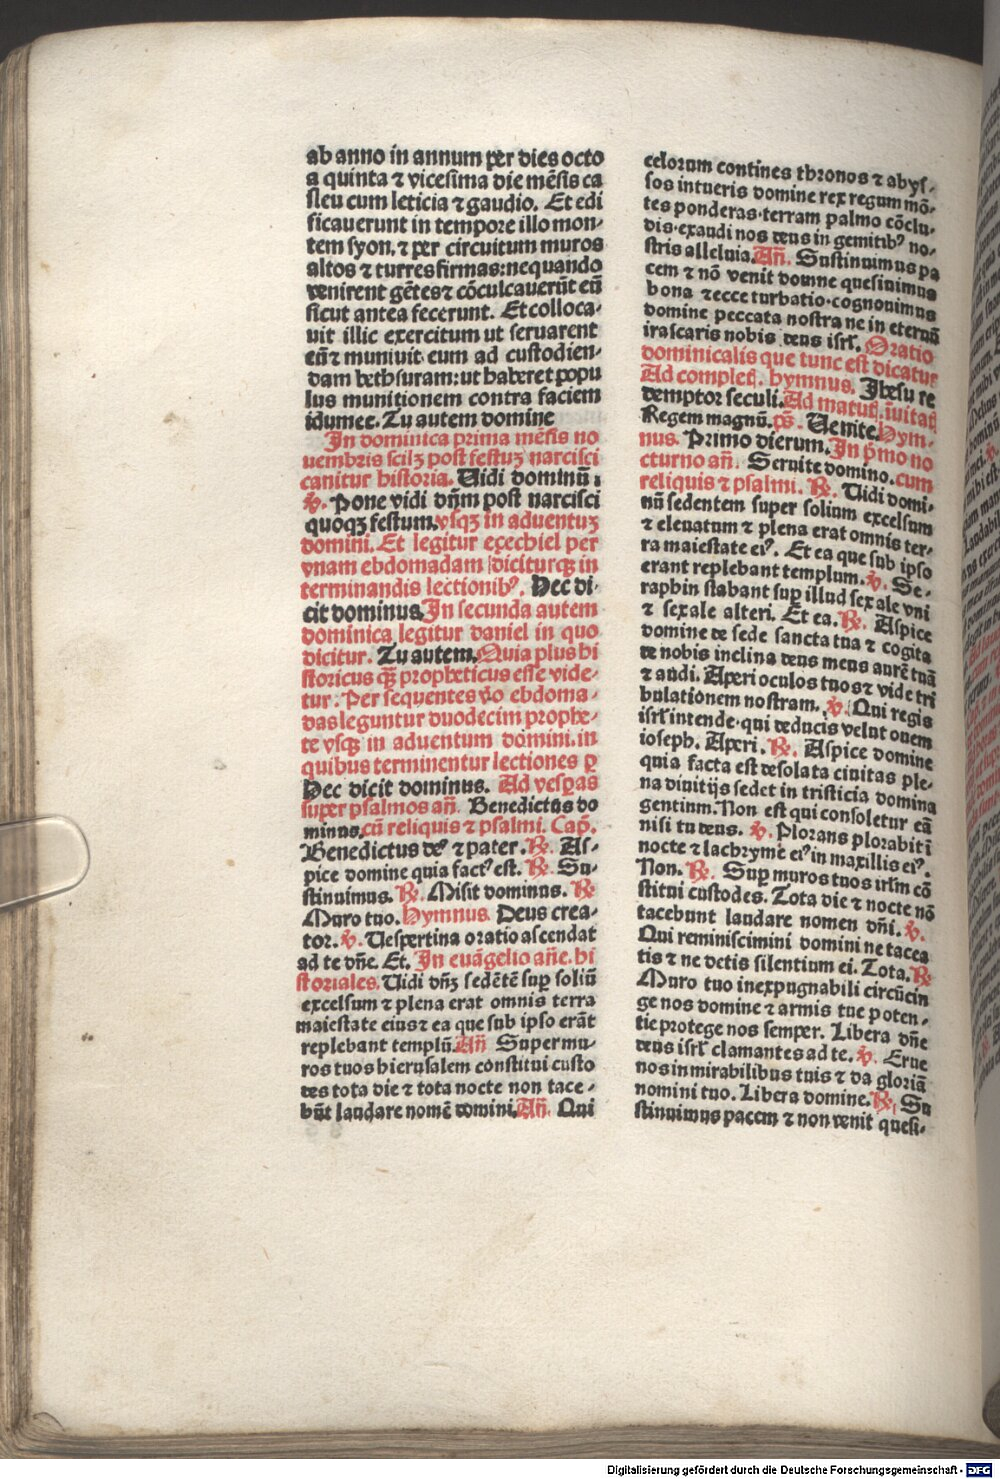 ab anno in annum per dies octo
a quinta ⁊ vicesima die mēsis ca
sleu cum leticia ⁊ gaudio. Et edi
ficauerunt in tempore illo mon-
tem syon. ⁊ per circuitum muros
altos ⁊ turres firmas: nequando
venirent gētes ⁊ cōculcauerūt eū
sicut antea fecerunt. Et colloca-
uit illic exercitum ut seruarent
eū ⁊ muniuit eum ad custodien-
dam bethsuram: ut haberet popu
lus munitionem contra faciem
idumee. Tu autem domine
In dominica prima mēsis no
uembris scilꝫ post festuꝫ narcisci
canitur historia. Uidi dominū i
℣. Pone vidi dn̄m post narcisci
quoqꝫ festum. vsqꝫ in aduentuꝫ
domini. Et legitur ezechiel per
vnam ebdomadam diciturqꝫ in
terminandis lectionibꝰ. Hec di-
cit dominus. In secunda autem
dominica legitur daniel in quo
dicitur. Tu autem. Quia plus hi
storicus qꝫ̄ propheticus esse vide-
tur. Per sequentes v̊o ebdoma-
das leguntur duodecim prophe-
te vsqꝫ in aduentum domini. in
quibus terminentur lectiones ꝑ
Hec dicit dominus. Ad vesꝑas
super psalmos an̄. Benedictus do
minus. cū reliquis ⁊ psalmi. Cap̄.
Benedictus deꝰ ⁊ pater. ℟. As-
pice domine quia factꝰ est. ℟. Su-
stinuimus. ℟. Misit dominus. ℟
Muro tuo. Hymnus. Deus crea-
tor. ℣. Uespertina oratio ascendat
ad te dn̄e. Et. In euāgelio an̄e. hi
storiales. Uidi dn̄ꝫ sedētē sup̱ soliū
excelsum ⁊ plena erat omnis terra
maiestate eius ⁊ ea que sub ipso erāt
replebant templū. An̄ Super mu-
ros tuos hierusalem constitui custo
des tota die ⁊ tota nocte non tace-
būt laudare nomē domini. An̄. Qui
celorum contines thronos ⁊ abys-
sos intueris domine rex regum mō-
tes ponderas. terram palmo cōclu-
dis. exaudi nos deus in gemitibꝰ no-
stris alleluia. An̄. Sustinuimus pa
cem ⁊ nō venit domne quesiuimus
bona ⁊ ecce turbatio. cognouimus
domine peccata nostra ne in eternū
irascaris nobis deus isrl̄. Oratio
dominicalis que tunc est dicatur
Ad completꝭ. hymnus. Jhesu re
demptor seculi. Ad matutꝭ. īuitaꝭ
Regem magnū. ps̄. Uenite. Hym-
nus. Primo dierum. In p̊mo no
cturno an̄. Seruite domino. cum
reliquis ⁊ psalmi. ℟. Uidi domi-
nū sedentem super solium excelsum
⁊ eleuatum ⁊ plena erat omnis ter-
ra maiestate eiꝰ. Et ea que sub ipso
erant replebant templum. ℣. Se-
raphin stabant sup̱ illud sex ale vni
⁊ sex ale alteri. Et ea. ℟. Aspice
domine de sede sancta tua ⁊ cogita
de nobis inclina deus meus aurē tuā
⁊ audi. Aperi oculos tuos ⁊ vide tri
bulationem nostram. ℣. Qui regis
isrl̄ intende. qui deducis velut ouem
ioseph. Aperi. ℟. Aspice domine
quia facta est desolata ciuitas ple-
na diuitijs sedet in tristicia domina
gentium. Non est qui consoletur eā
nisi tu deus. ℣. Plorans plorabit ī
nocte ⁊ lachryme eiꝰ in maxillis eiꝰ.
Non. ℟. Sup̱ muros tuos irl̄m cō
stitui custodes. Tota die ⁊ nocte nō
tacebunt laudare nomen dn̄i. ℣.
Qui reminiscimini domini ne tacea
tis ⁊ ne detis silentium ei. Tota. ℟
Muro tuo inexpugnabili circūcin
ge nos domine ⁊ armis tue poten-
tie protege nos semper. Libera dn̄e
deus isrl̄ clamantes ad te. ℣. Erue
nos in mirabilibus tuis ⁊ da gloriā
nomini tuo. Libera domine. ℟. Su
stinuimus pacem ⁊ non venit quesi-
Digitalisierung gefördert durch die Deutsche Forschungsgemeinschaft - DFG